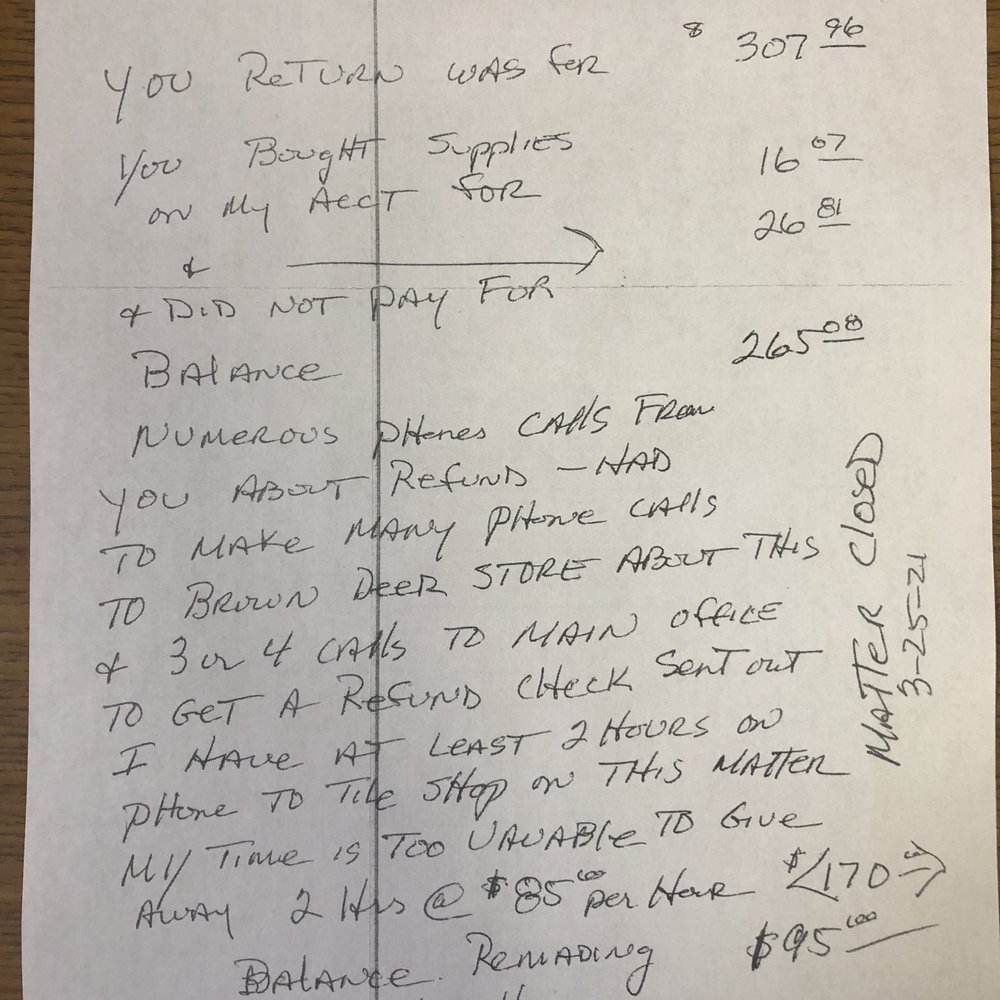 YOU RETURN WAS FOR $ 307 96
YOU BOUGHT SUPPLIES 16 07
ON MY ACCT FOR 26 81
&
& DID NOT PAY FOR
BALANCE 265 08
NUMEROUS PHONES CALLS FROM
YOU ABOUT REFUND - HAD
TO MAKE MANY PHONE CALLS
TO BROWN DEER STORE ABOUT THIS
& 3 or 4 CALLS TO MAIN OFFICE
TO GET A REFUND CHECK SENT OUT
I HAVE AT LEAST 2 HOURS ON
PHONE TO TILE SHOP ON THIS MATTER
MY TIME IS TOO VAUABLE TO GIVE
AWAY 2 HRS @ $85 00 per HOUR $170
BALANCE REMAING $95 00
MATTER CLOSED
3-25-21